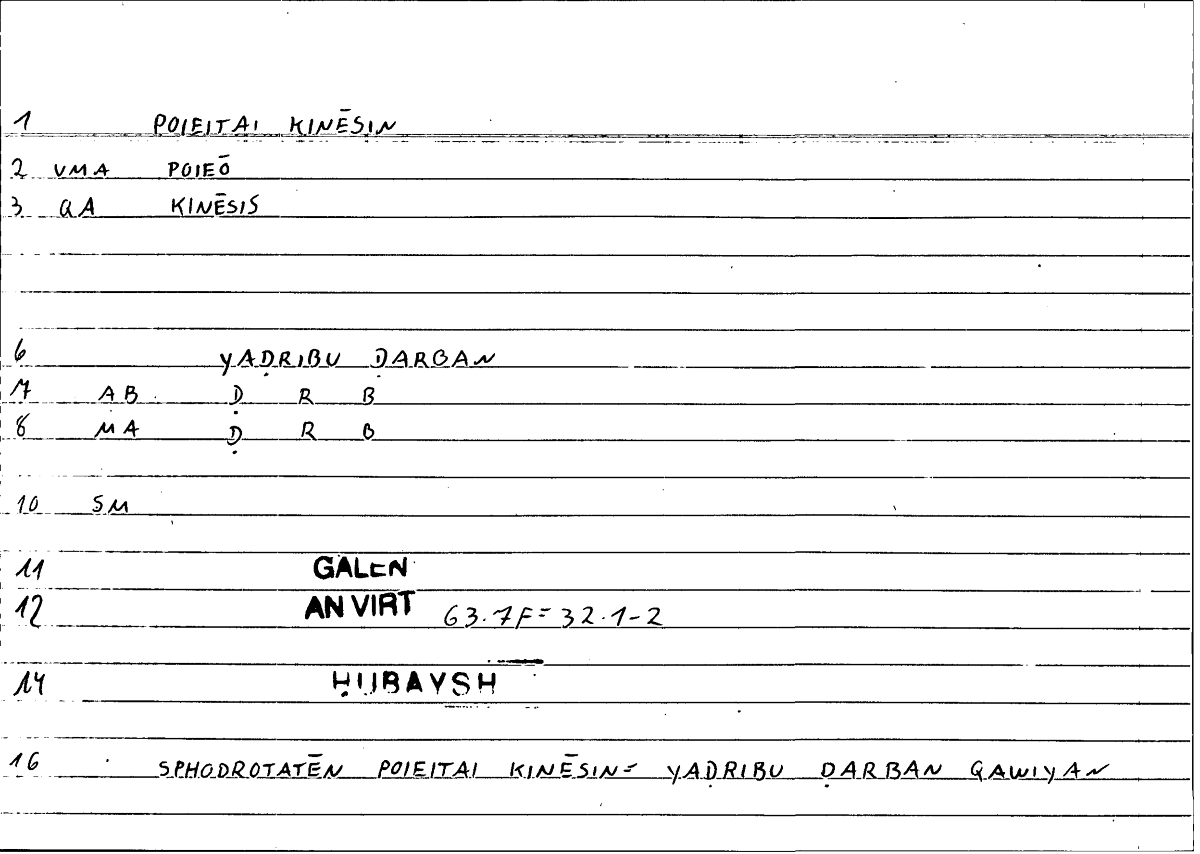 1 POIEITAI KINĒSIN
2 VMA POIEŌ
3 QA KINĒSIS
6 YAḌRIBU ḌARBAN
7 AB Ḍ R B
8 MA Ḍ R B
10 SM
11 GALEN
12 AN VIRT 63.7F=32.1-2
14 ḤUBAYSH
16 SPHODROTATĒN POIEITAI KINĒSIN= YAḌRIBU ḌARBAN QAWIYAN